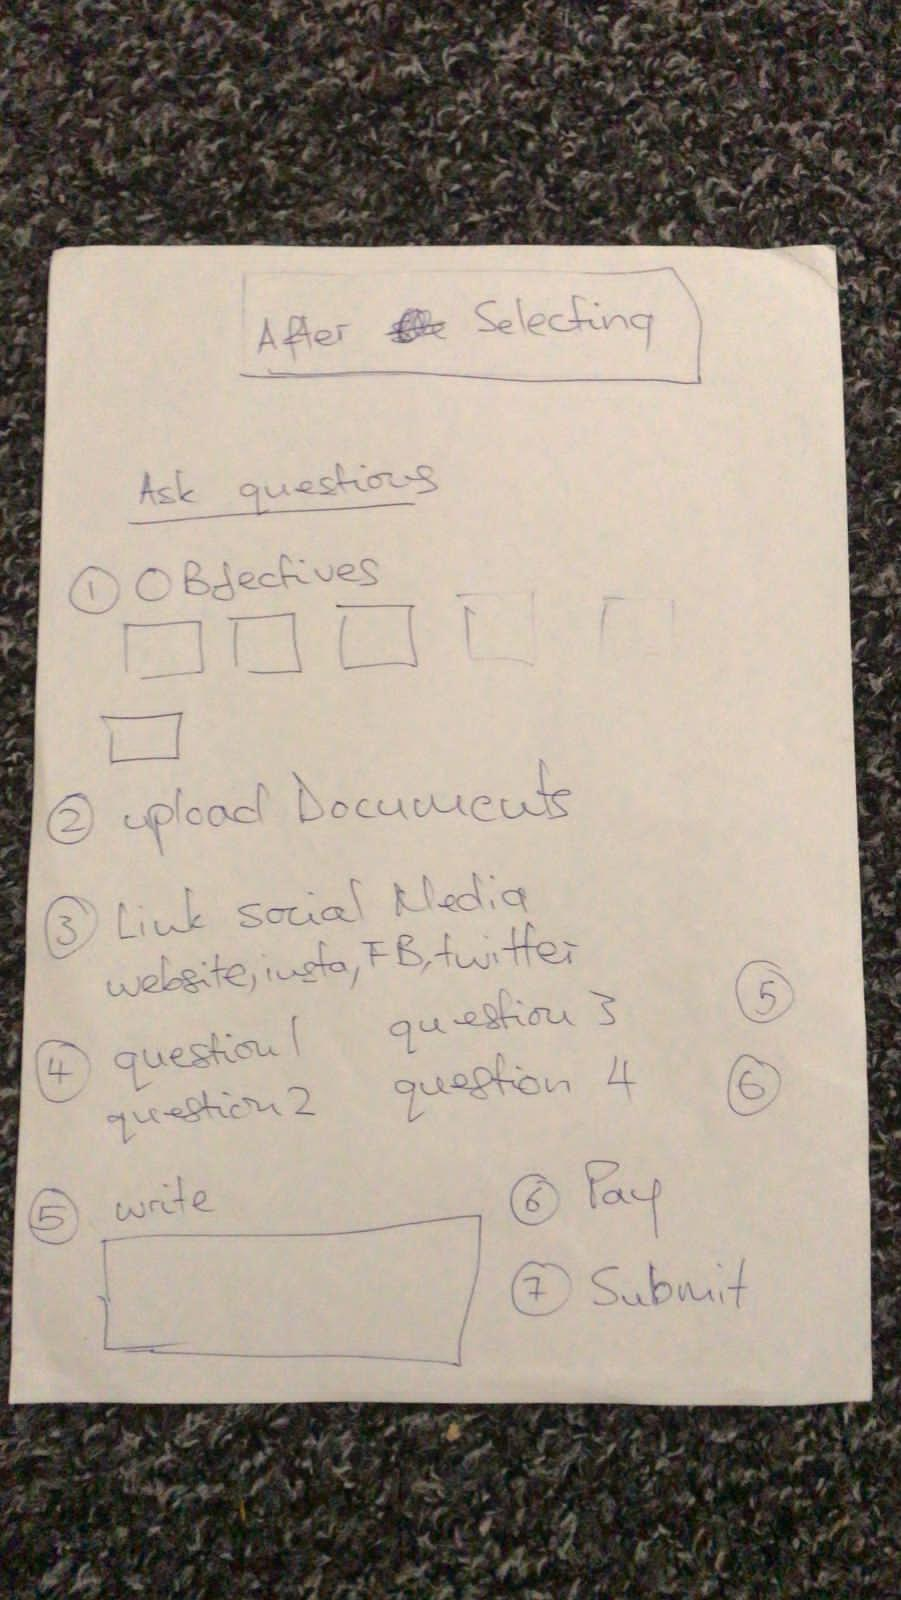 After Selecting
Ask questions
① OBjectives
② upload Documents
③ Link social Media
website, insta, FB, twitter
④ question 1 question 3
question 2 question 4
⑤
⑥
⑤ write
⑥ Pay
⑦ Submit